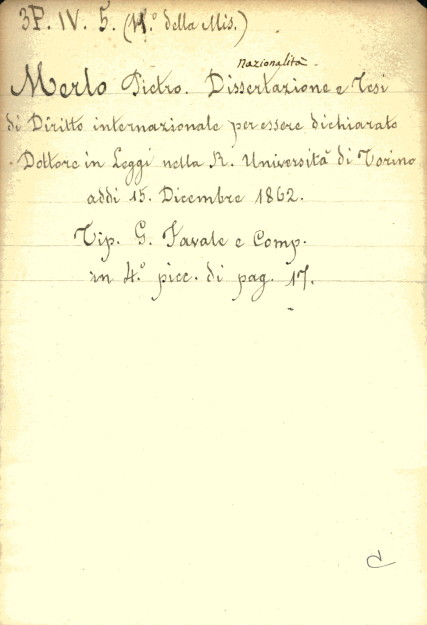 3P. IV. 5. (11.º della Mis.)
nazionalità
Merlo Pietro. Dissertazione e Tesi
di Diritto internazionale per essere dichiarato
Dottore in Leggi nella R. Università di Torino
addì 15. Dicembre 1862.
Tip. G. Favale e Comp.
in 4.º picc. di pag. 17.
C